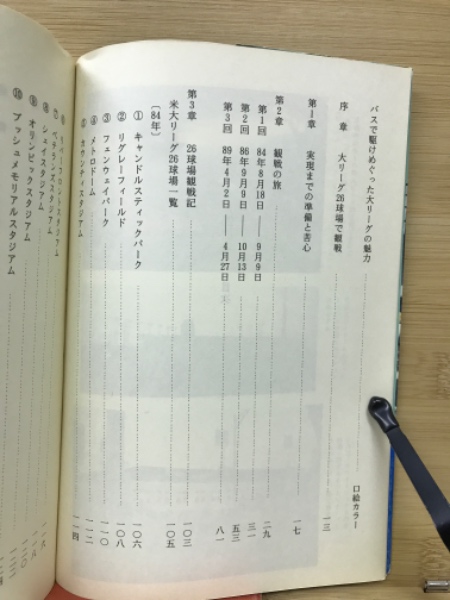 バスで駆けめぐった大リーグの魅力 口絵カラー
序章 大リーグ26球場で観戦 一三
第1章 実現までの準備と苦心 一七
第2章 観戦の旅 二九
第1回 84年8月18日――9月9日 三一
第2回 86年9月9日――10月13日 五三
第3回 89年4月2日――4月27日 八一
第3章 26球場観戦記 一〇三
米大リーグ26球場一覧 一〇五
〔84年〕
① キャンドルスティックパーク 一〇六
② リグレーフィールド 一〇八
③ フェンウェイパーク 一一〇
④ メトロドーム 一一二
⑤ カウンティスタジアム 一一四
⑥ リバフロントスタジアム
⑦ ベテランズスタジアム
⑧ シェイスタジアム
⑨ オリンピックスタジアム
⑩ ブッシュメモリアルスタジアム